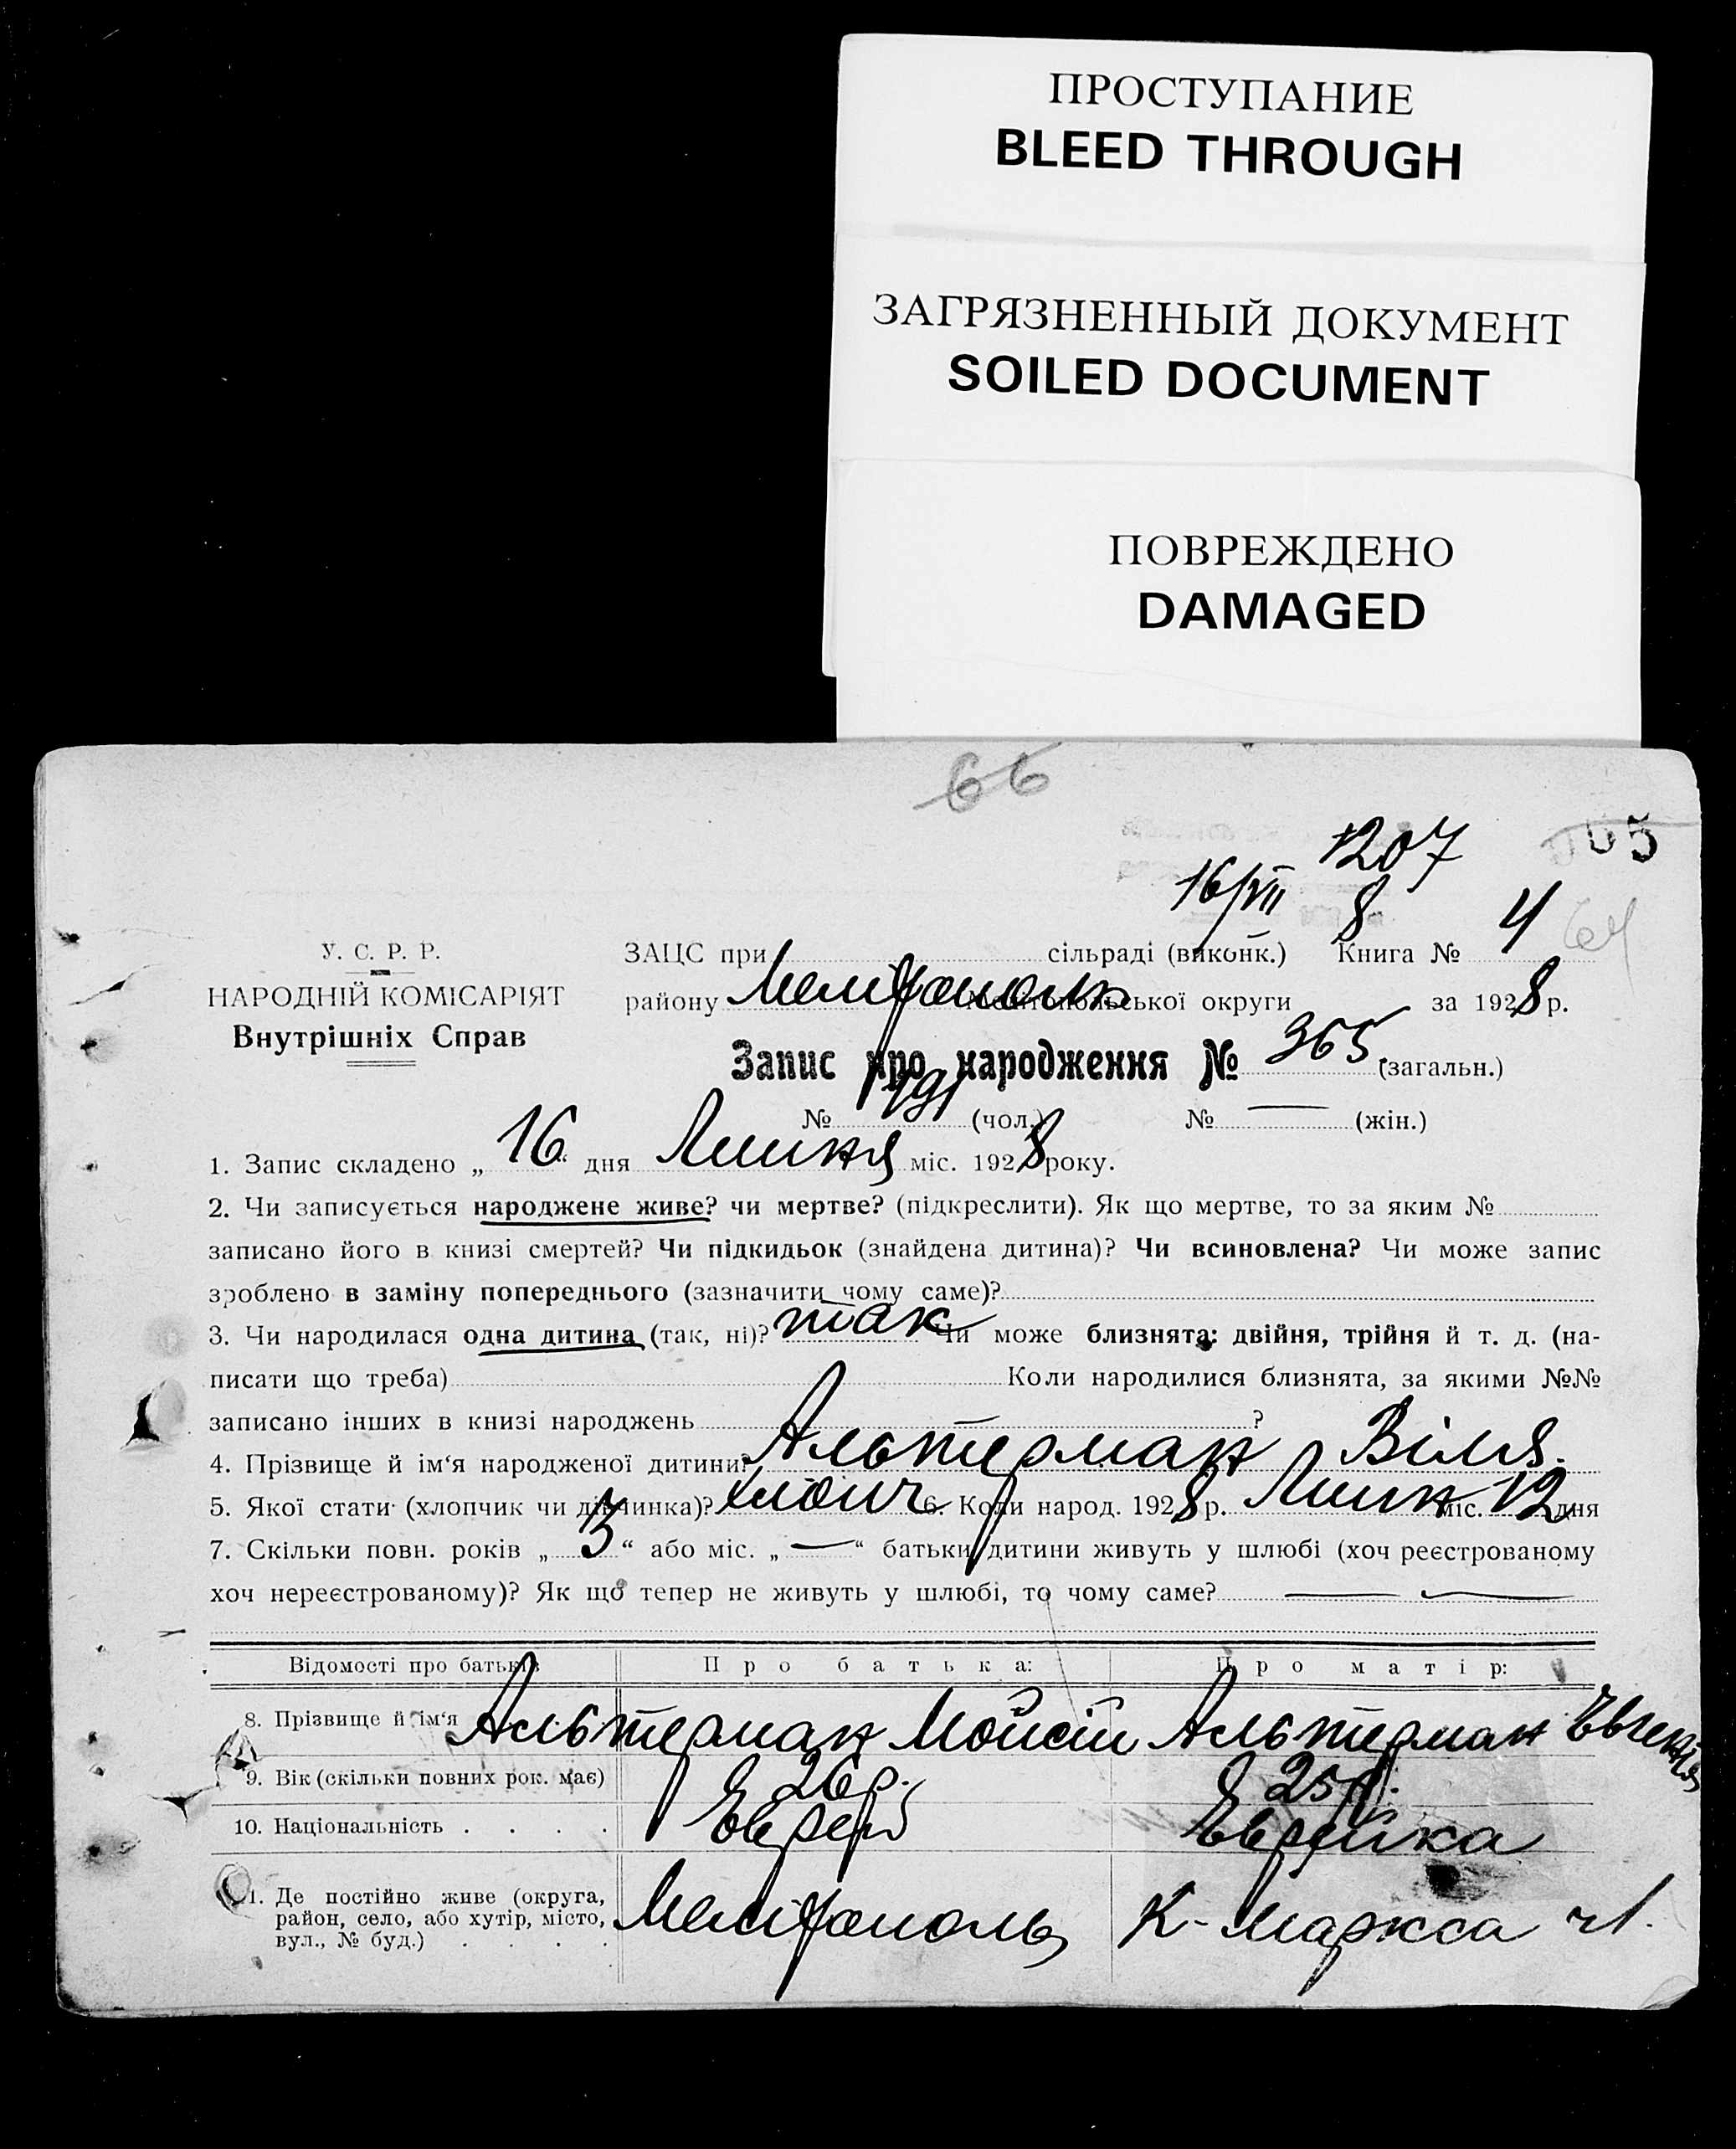 ПРОСТУПАНИЕ
BLEED THROUGH
ЗАГРЯЗНЕННЫЙ ДОКУМЕНТ
SOILED DOCUMENT
ПОВРЕЖДЕНО
DAMAGED
66
1207
16/VII 8 4 64
У. С. Р. Р.
НАРОДНІЙ КОМІСАРІЯТ
Внутрішніх Справ
ЗАЦС при сільраді (виконк.) Книга №
району Мелітополь Мелітопольської округи за 1928 р.
Запис про народження № 365 (загальн.)
№ 191 (чол.) № — (жін.)
1. Запис складено „16“ дня Липня міс. 1928 року.
2. Чи записується народжене живе? чи мертве? (підкреслити). Як що мертве, то за яким №
записано його в книзі смертей? Чи підкидьок (знайдена дитина)? Чи всиновлена? Чи може запис
зроблено в заміну попереднього (зазначити чому саме)?
3. Чи народилася одна дитина (так, ні)? так Чи може близнята: двійня, трійня й т. д. (на-
писати що треба) Коли народилися близнята, за якими №№
записано інших в книзі народжень ?
4. Прізвище й ім‘я народженої дитини? Альтерман Віля.
5. Якої стати (хлопчик чи дівчинка)? 6. Коли народ. 1928 р. Липн міс. 12 дня
7. Скільки повн. років „3“ або міс. „—“ батьки дитини живуть у шлюбі (хоч реєстрованому
хоч нереєстрованому)? Як що тепер не живуть у шлюбі, то чому саме? — —
Відомості про батьків Про батька: Про матір:
8. Прізвище й ім‘я Альтерман Мойсій Альтерман Євгенія
9. Вік (скільки повних рок. має) 26 р. 25 р.
10. Національність . . . . Єврей Єврейка
11. Де постійно живе (округа,
район, село, або хутір, місто,
вул., № буд.) . . . . Мелітополь К-Маркса